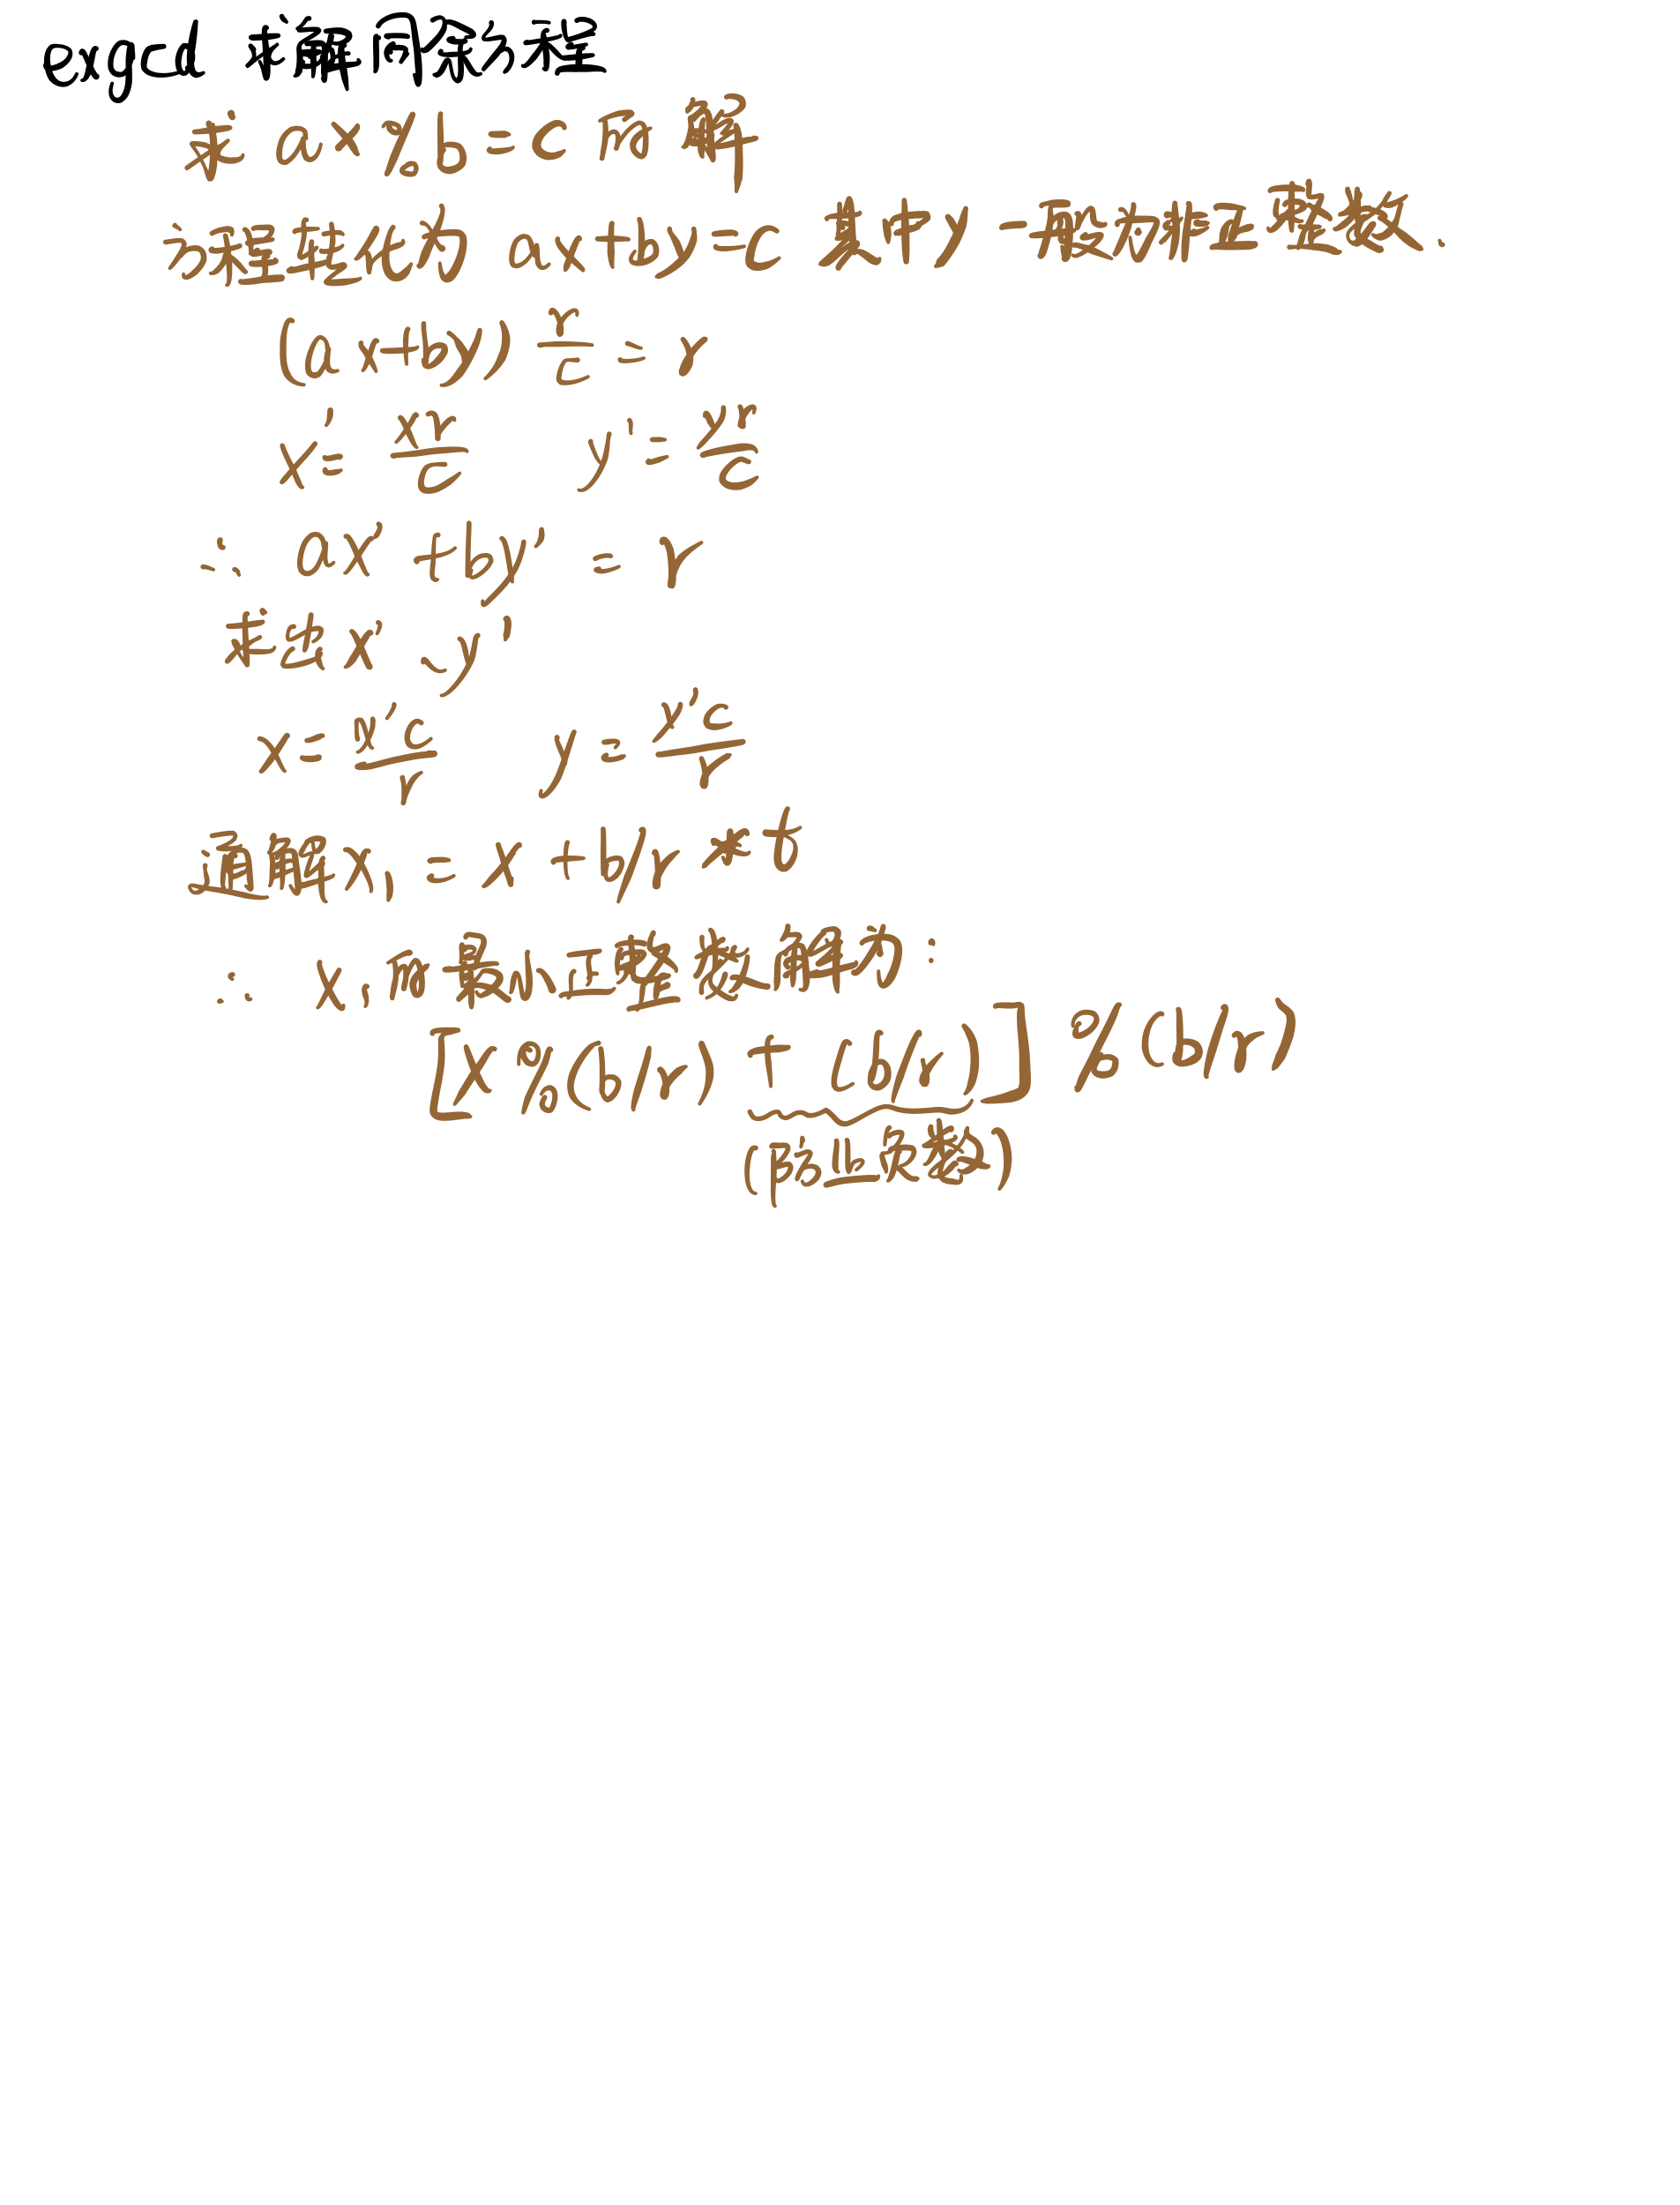 exgcd 求解同余方程
求 ax%b=c 的解
方程转化为 ax+by=c 其中y一般为非正整数.
(ax+by) r/c = r
x'= xr/c y'= yr/c
∴ ax'+by' = r
求出x'、y'
x= x'c/r y= x'c/r
通解x₁ = x + b/r * t
∴ x₁的最小正整数解为:
[x%(b/r) + (b/r)]%(b/r)
(防止负数)